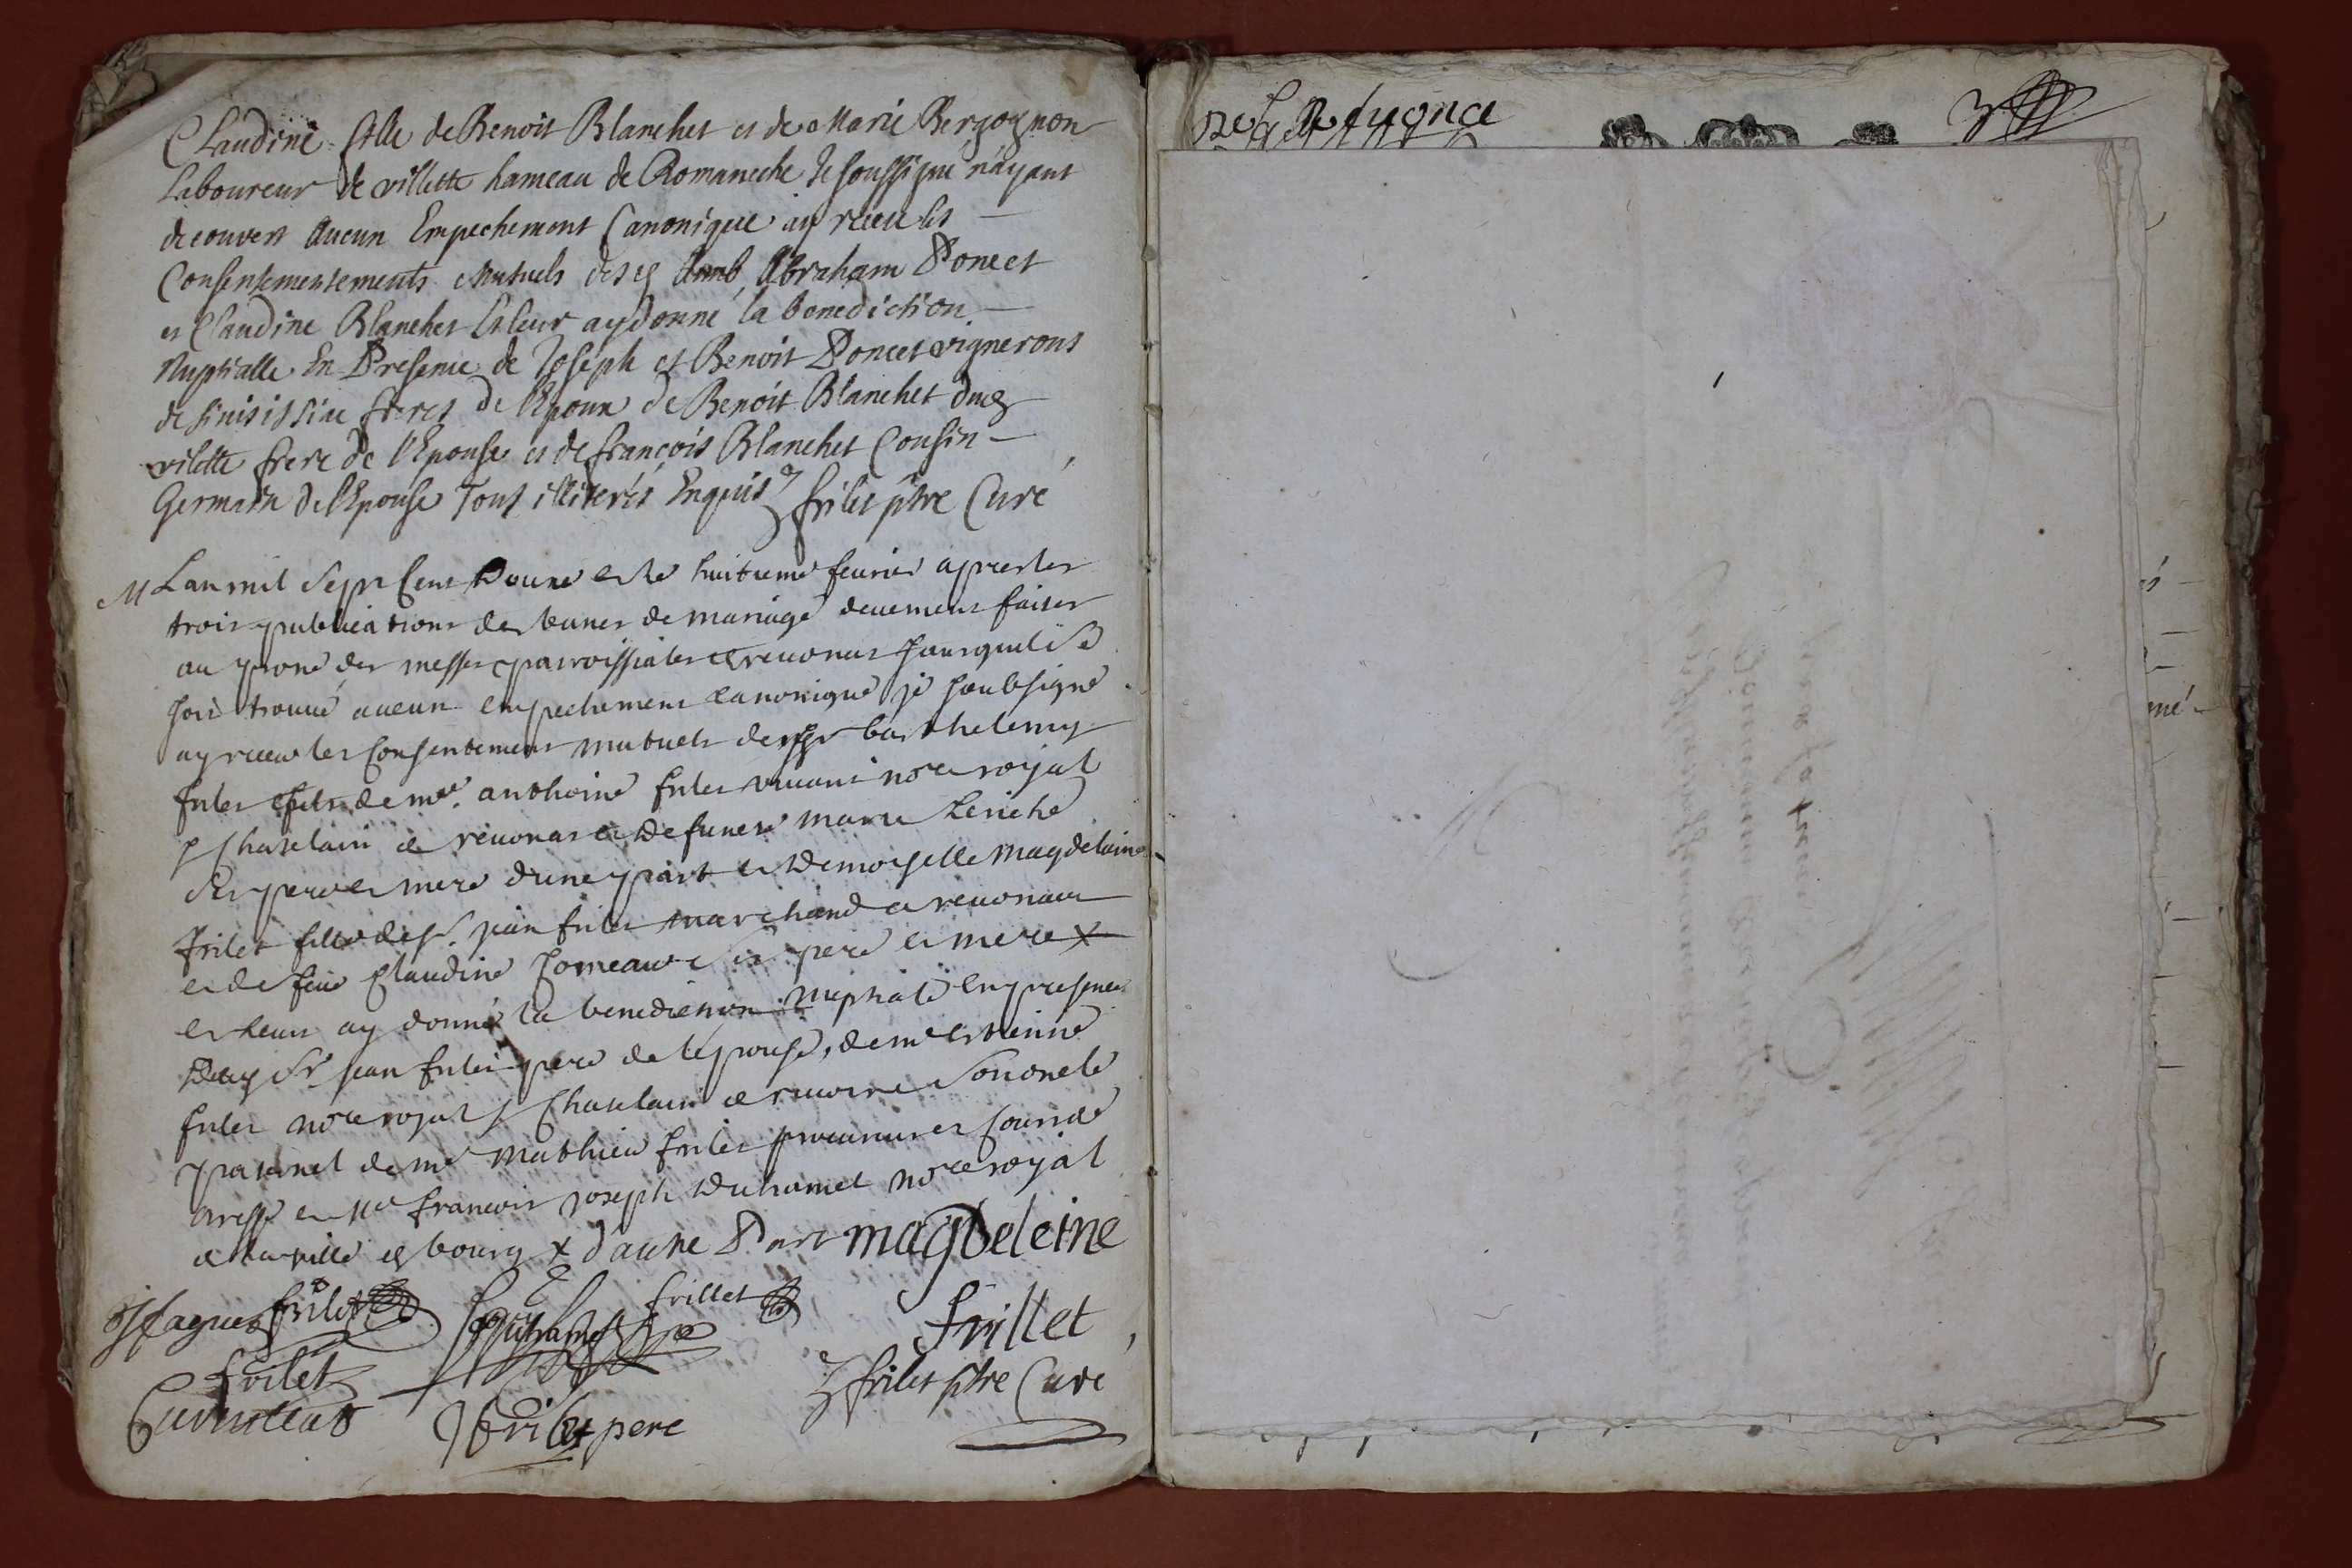 Claudine fille de Benoit Blanchet et de Marie Bergognon
Laboureur de villette hameau de Romaneche Je soussigné n'ayant
decouvert Aucun Empechement Canonique ay receu les
Consentementements Mutuels desd Abraham Poncet
et Claudine Blanchet & leur ay donné la benediction
Nuptialle En Presence de Joseph et Benoit Poncet vignerons
de freres de l'Epoux de Benoit Blanchet dud
vilette frere de l'Epouse et de françois Blanchet Cousin
Germain de l'Epouse Tous illiterés Enquis frilet ptre Curé
M Lan mil Sept Cent Douze et le huitieme feurier apres les
trois publications des bancs de mariage deuement faites
au prone des messes parroissiales de reuonas sans quil se
soit trouué aucun empechement canonique je soubsigné
ay receu les consentemens mutuels de Sr barthelemy
frilet fils de me. anthoine frilet viuant nore royal
& Chatelain de reuonas et de functe marie
ses pere et mere d'une part et Demoyselle magdelaine
frilet fille de Sr. jean frilet marchand de reuonas
et de feue Claudine ses pere et mere x
et leurs ay donné la benediction nuptiale en presence
Dudy Sr jean frilet pere de lepouse, de me estienne
frilet nore royal & Chatelain de son oncle
paternel de me Mathieu frilet procureur es Cours de
bresse et Me francois joseph Duhamel nore royal
de la ville de bourg x d'autre Part magdeleine
frilet frillet
frillet
frilet
frilet ptre Curé
frilet pere